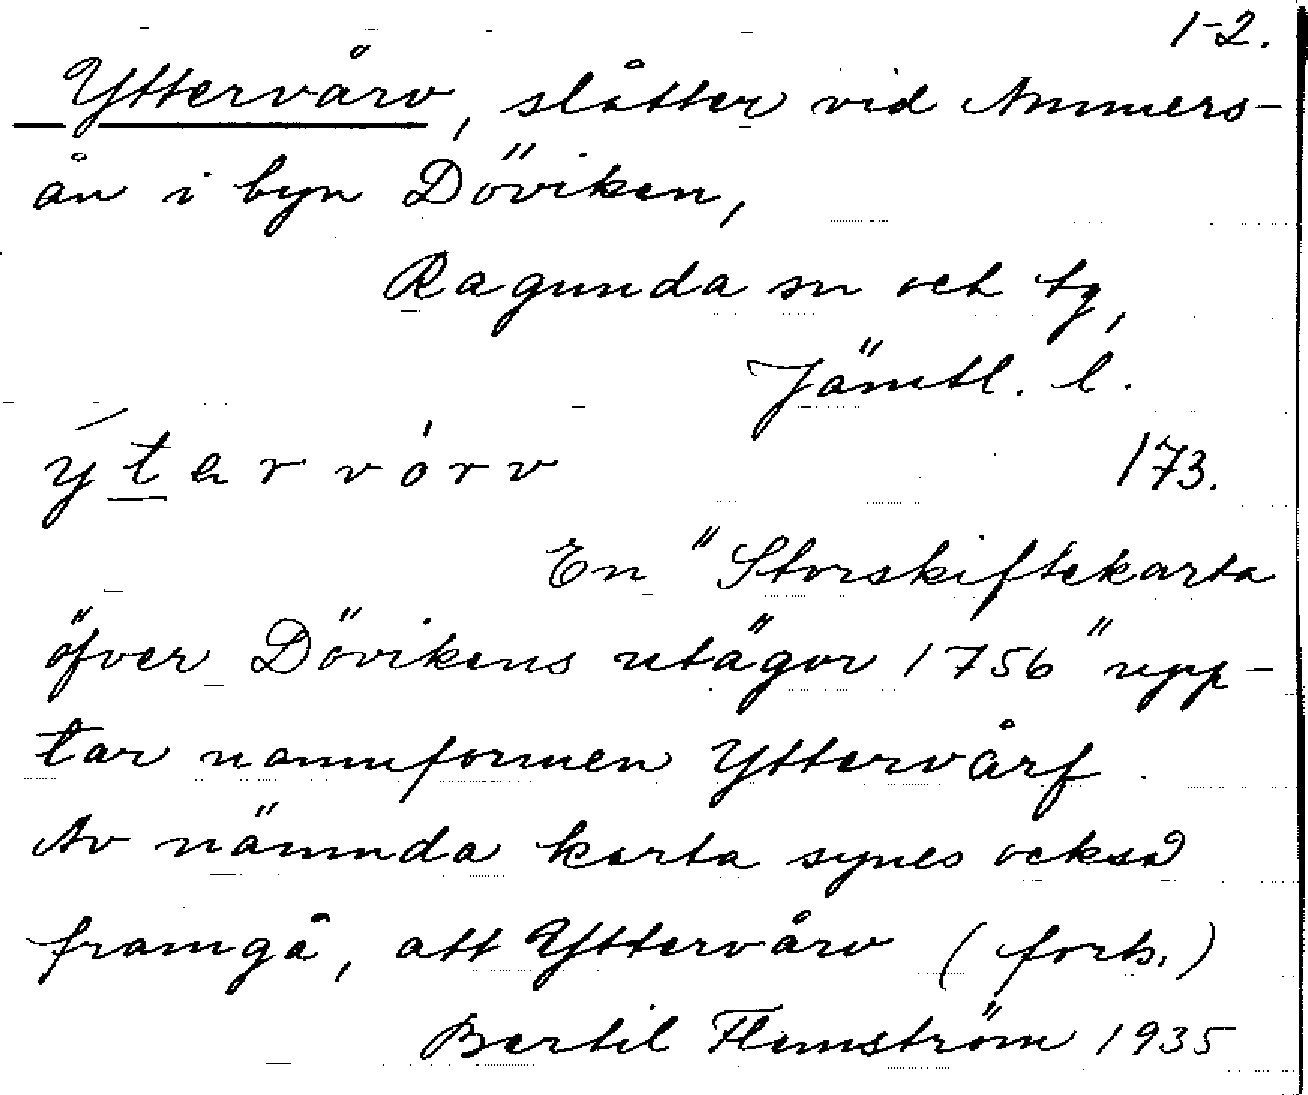 1-2.
Yttervårv, slåtter vid Ammers-
ån i byn Döviken,
Ragunda sn och tg,
Jämtl. l.
ýtarvórv 173.
En "Storskiftekarta
öfver Dövikens utägor 1756" upp-
tar namnformen Yttervårf.
Av nämnda karta synes också
framgå, att Yttervårv (forts.)
Bertil Flemström 1935